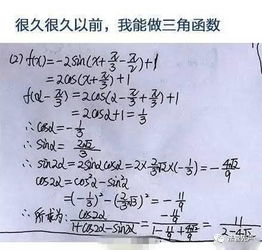 很久很久以前，我能做三角函数
(2) f(x)=-2sin(x+π/3-π/2)+1
=2cos(x+π/3)+1
f(α-π/3)=2cos(α-π/3+π/3)+1
=2cosα+1=1/3
∴cosα=-1/3
∴sinα=2√2/3
∴sin2α=2sinαcosα=2×2/3√2×(-1/3)=-4√2/9
cos2α=cos²α-sin²α
=(-1/3)²-(2/3√2)²=-11/9
∴所求为:cos2α/(1+cos2α-sin2α)=(-11/9)/(1-11/9+4√2/9)=11/(2-4√2)